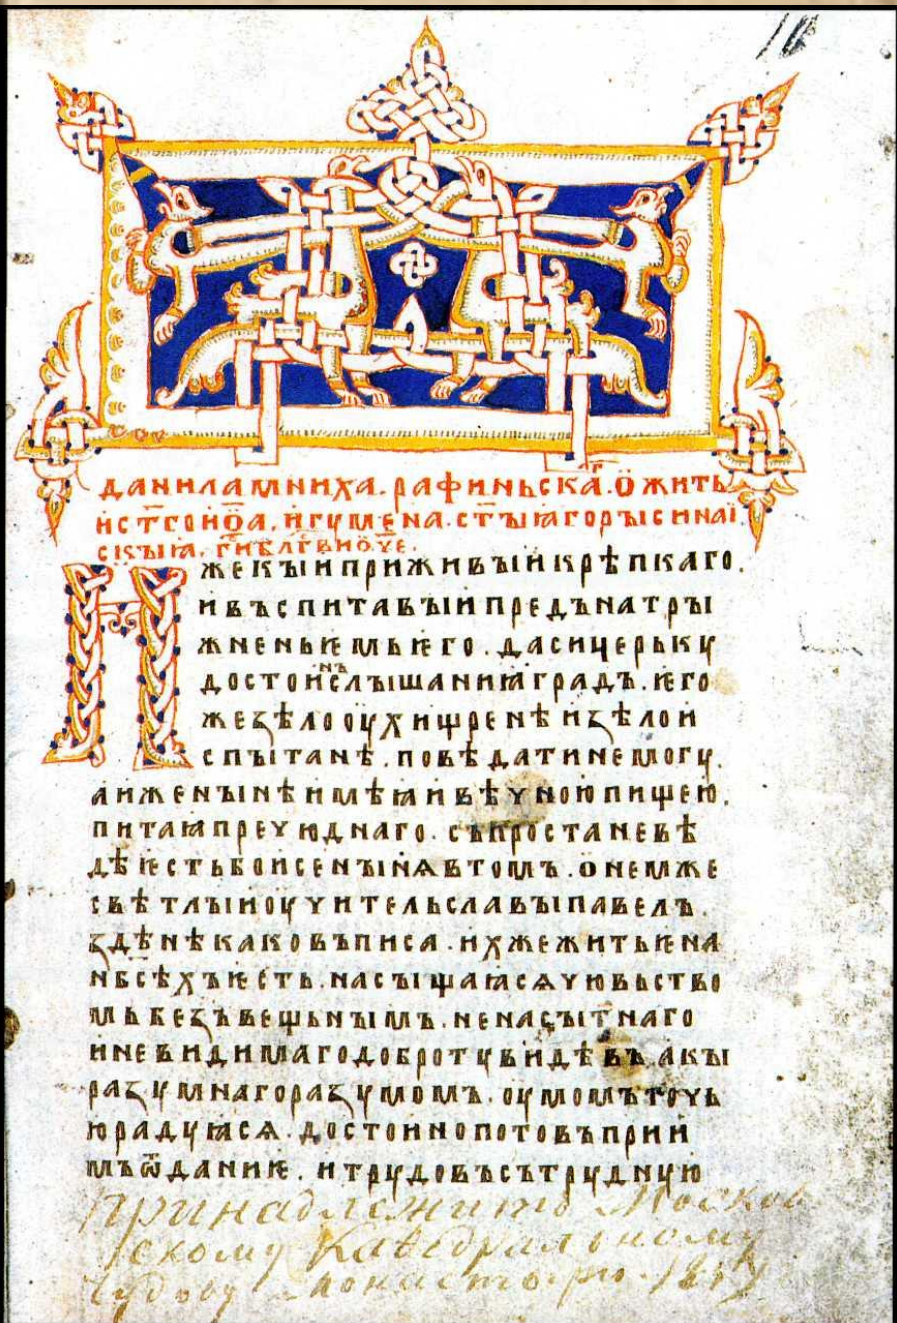 данила мниха. рафиньска҃г. ѻ҆ жить
и ст҃го иѡ҃а. игѹмена. ст҃ыꙗ горꙑ синаи
скыꙗ. ги҃ бл҃гви ѻ҃ч҃е.
Пже кꙑи приживꙑи крѣпкаго.
и въспитавꙑи предъ натрꙑ
жненьѥмь ѥго. да си церькꙋ
достоинъ слꙑшаниꙗ градъ. ѥго
же ꙁѣло ѹхищренѣ и ꙁѣло и
спꙑтанѣ. повѣдати не могꙋ.
аиже нꙑнѣ имѣꙗи вѣчною пищею.
питаꙗ пречюднаго. съпроста не вѣ
дѣ ѥсть бо и се нꙑнѧ в томъ. ѻ немже
свѣтлꙑи ѹчитель славꙑ павелъ.
ꙁдѣ нѣкако въписа. ихже житьѥ на
нб҃сѣхъ ѥсть. насꙑщаꙗсѧ чювьство
мь беꙁъвещьнꙑмъ. ненасꙑтнаго
и невидимаго добротꙋ видѣвъ. акꙑ
раꙁꙋмнаго раꙁꙋмомъ. ѹмомъ точь
ю радꙋꙗсѧ. достоино потовъ прии
мъ ѿданиѥ. и трꙋдовъ сътрꙋднꙋю
принадлежитъ Москов
скому Каѳедральному
Чудову монастырю.